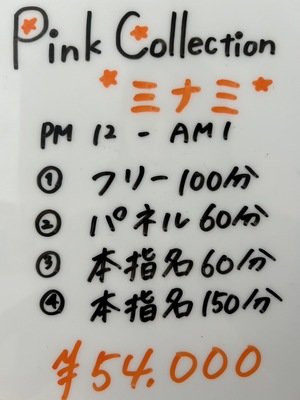 Pink Collection
*ミナミ*
PM 12 - AM1
① フリー100分
② パネル60分
③ 本指名60分
④ 本指名150分
¥54.000